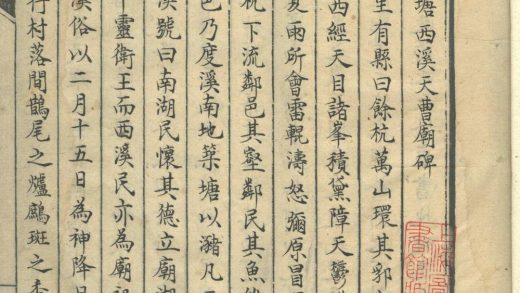 塘西溪天曹廟碑
生有縣曰餘杭萬山環其郛
西經天目諸峯積黛障天
夏雨所會雷輥濤怒彌原冒
杭下流鄰邑其壑鄰民其魚
邑乃度溪南地築塘以瀦凡
溪號曰南湖民懷其德立廟湖
平靈衛王而西溪民亦為廟祀
溪俗以二月十五日為神降日
行村落間鵲尾之爐鷓斑之香